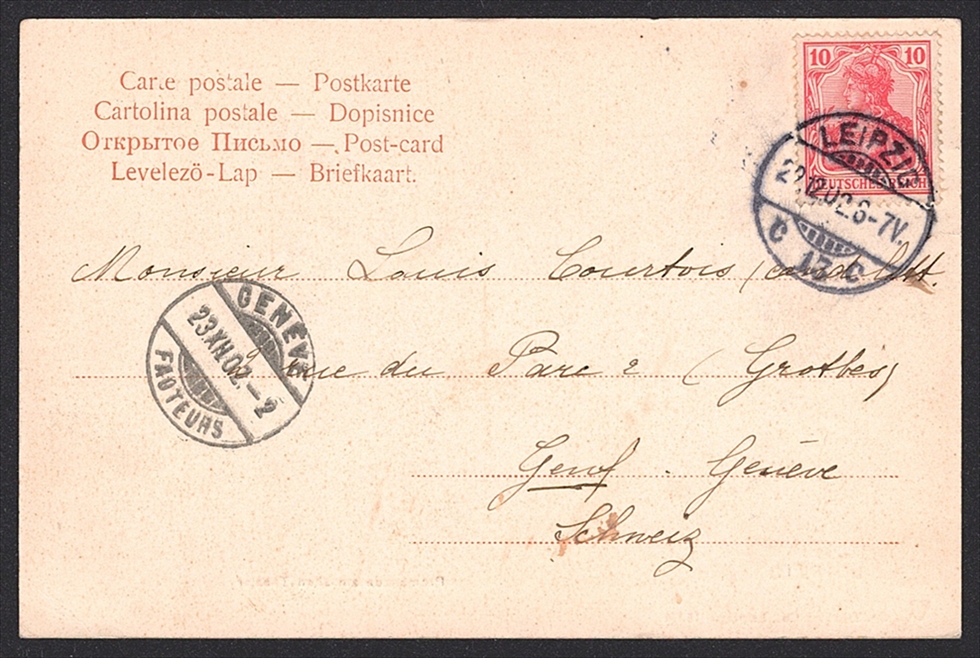 Carte postale — Postkarte
Cartolina postale — Dopisnice
Открытое Письмо — Post-card
Levelező-Lap — Briefkaart.
10 10
DEUTSCHES REICH
LEIPZIG
12.02.6-7V.
C 13 C
Monsieur Louis Courtois
GENÈVE
23.XII.02.-2
FACTEURS
rue du Parc 2
Genf. Genève
Schweiz